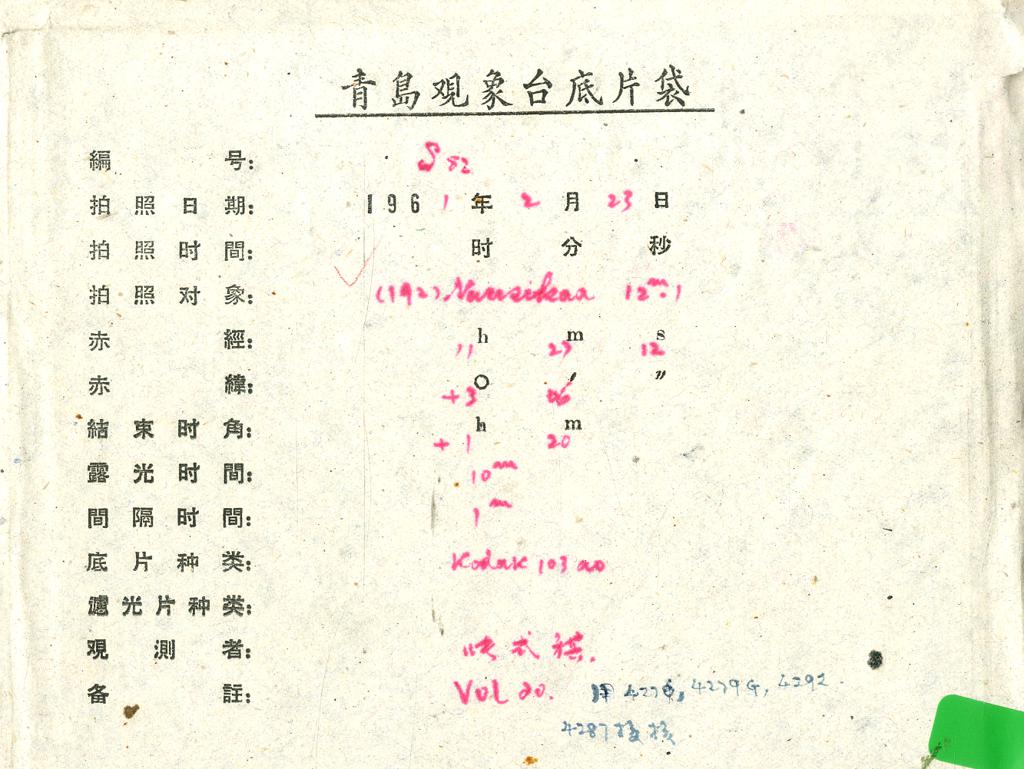 青島观象台底片袋
編号: S 82
拍照日期: 1961年2月23日
拍照时間: 时 分 秒
拍照对象: (192) Nausikaa 12m.1
赤經: 11h 27m 12s
赤緯: +3° 06′ ″
結束时角: +1h 20m
露光时間: 10m
間隔时間: 1m
底片种类: Kodak 103 ao
濾光片种类:
观測者: 式
备註: Vol 20. 用 4279G, 4292.
4287